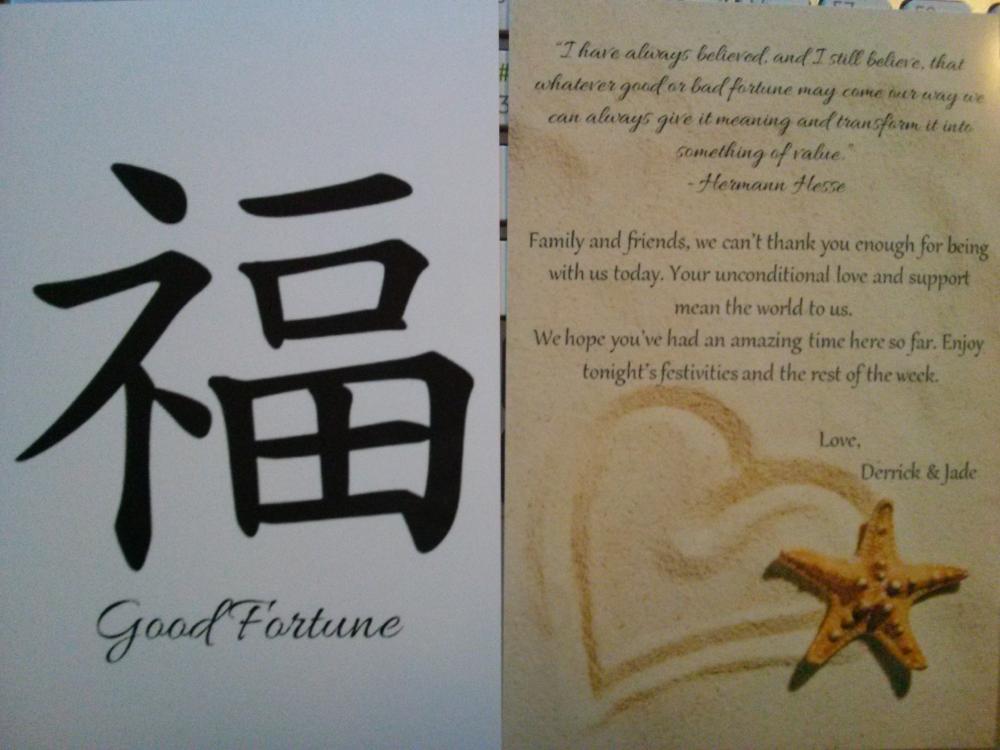 福
Good Fortune
"I have always believed, and I still believe, that
whatever good or bad fortune may come our way we
can always give it meaning and transform it into
something of value."
- Hermann Hesse
Family and friends, we can't thank you enough for being
with us today. Your unconditional love and support
mean the world to us.
We hope you've had an amazing time here so far. Enjoy
tonight's festivities and the rest of the week.
Love,
Derrick & Jade